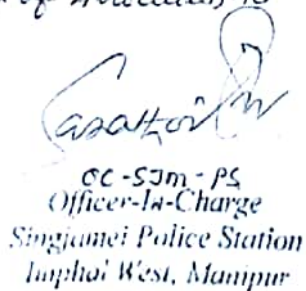 of
OC-SJM-PS
Officer-In-Charge
Singjamei Police Station
Imphal West, Manipur